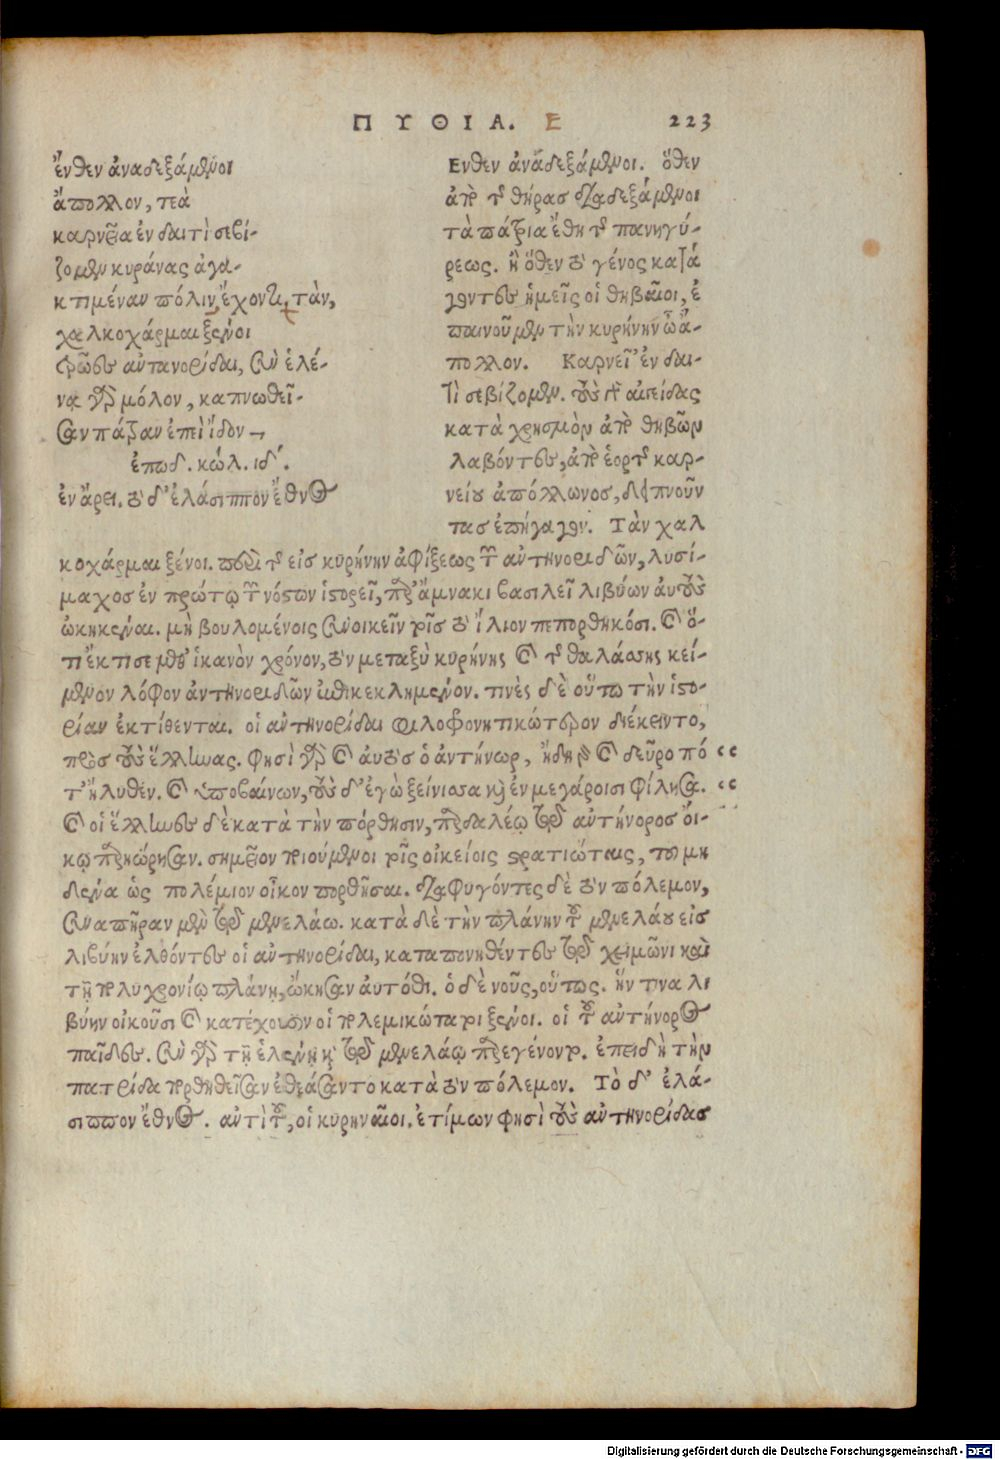 ΠΥΘΙΑ. Ε 223
ἔνθεν ἀναδεξάμενοι
ἄπολλον, τεὰ
καρνεῖα ἐν δαιτὶ σεβί-
ζομεν κυράνας ἀγα-
κτιμέναν πόλιν, ἔχοντι, τὰν,
χαλκοχάρμαι ξένοι
τρῶες αὐτανορίδαι, σὺν ἑλέ-
να γὰρ μόλον, καπνωθεῖ-
σαν πάτραν ἐπεὶ ἴδον
ἐπωδ. κώλ. ιδ´.
ἐν ἄρει. τὸ δ' ἐλάσιππον ἔθνος
Ενθεν ἀναδεξάμενοι. ὅθεν
ἀπὸ τῆς θήρας διαδεξάμενοι
τὰ πάτρια ἔθη τῆς πανηγύ-
ρεως. ἢ ὅθεν τὸ γένος κατά
γοντες ἡμεῖς οἱ θηβαῖοι, ἐ
παινοῦμεν τὴν κυρήνην ὦ ἄ-
πολλον. Καρνεῖ' ἐν δαι-
τὶ σεβίζομεν. τοὺς γὰρ αἰγείδας
κατὰ χρησμὸν ἀπὸ θηβῶν
λαβόντες, ἀπὸ ἑορτῆς καρ-
νείου ἀπόλλωνος, δειπνοῦν
τας ἐπήγαγεν. Τὰν χαλ
κοχάρμαι ξένοι. περὶ τῆς εἰς κυρήνην ἀφίξεως τῶν αὐτηνοριδῶν, λυσί-
μαχος ἐν πρώτῳ τῶν νόστων ἱστορεῖ, παρ' ἄμνακι βασιλεῖ λιβύων αὐτοὺς
ὠκηκέναι. μὴ βουλομένοις συνοικεῖν τοῖς τὸ ἴλιον πεπορθηκόσι. καὶ ὅ-
τι ἔκτισε μεθ' ἱκανὸν χρόνον, τὸν μεταξὺ κυρήνης καὶ τῆς θαλάσσης κεί-
μενον λόφον ἀντηνοριδῶν ἐπικεκλημένον. τινὲς δὲ οὕτω τὴν ἱστο-
ρίαν ἐκτίθενται. οἱ αὐτηνορίδαι φιλοφρονητικώτερον διέκειντο,
πρὸς τοὺς ἕλληνας. φησὶ γὰρ καὶ αὐτὸς ὁ ἀντήνωρ, ἤδη γὰρ καὶ δεῦρο πό “
τ' ἤλυθεν. καὶ ὑποβαίνων, τοὺς δ' ἐγὼ ξείνισσα καὶ ἐν μεγάροισι φίλησα. “
καὶ οἱ ἕλληνες δὲ κατὰ τὴν πόρθησιν, παρδαλέῳ τῷ αὐτήνορος οἴ-
κῳ παρῃώρησαν. σημεῖον ποιούμενοι τοῖς οἰκείοις στρατιώταις, τοῦ μη
δένα ὡς πολέμιον οἶκον πορθῆσαι. διαφυγόντες δὲ τὸν πόλεμον,
συναπῆραν μὲν τῷ μενελάω. κατὰ δὲ τὴν πλάνην τοῦ μενελάου εἰς
λιβύην ἐλθόντες οἱ αὐτηνορίδαι, καταπονηθέντες τῷ χειμῶνι καὶ
τῇ πολυχρονίῳ πλάνῃ, ὤκησαν αὐτόθι. ὁ δὲ νοῦς, οὕτως. ἥν τινα λι
βύην οἰκοῦσι καὶ κατέχουσιν οἱ πολεμικώτατοι ξένοι. οἱ τοῦ αὐτήνορος
παῖδες. σὺν γὰρ τῇ ἑλένῃ καὶ τῷ μενελάῳ παρεγένοντο. ἐπειδὴ τὴν
πατρίδα πορθηθεῖσαν ἐθεάσαντο κατὰ τὸν πόλεμον. Τὸ δ' ἐλά-
σιππον ἔθνος. αὐτὶ τοῦ, οἱ κυρηναῖοι. ἐτίμων φησὶ τοὺς αὐτηνορίδας
Digitalisierung gefördert durch die Deutsche Forschungsgemeinschaft - DFG